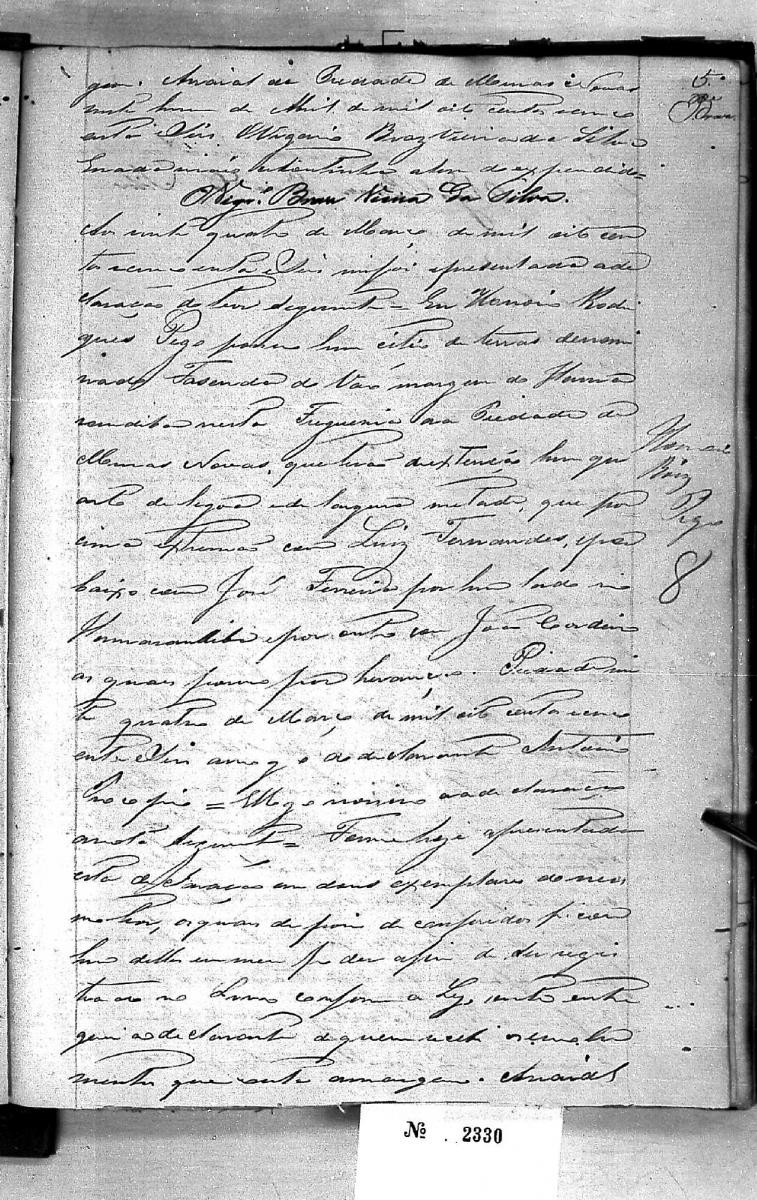 gem. Arraial da Piedade de Minas Novas
vinte hum de Abril de mil oito centos cinco
enta e Seis. O Vigario Braz Vieira da Silva
Enada mais continha alem do expendido =
O Vigr.º Braz Vieira da Silva.
Ao vinte quatro de Março de mil oito cen
tos cinco enta e Seis me foi apresentada a de
claração do teor Seguinte = Eu Rodri
gues Pego possuo hum citio de terras denomi
nado Fasenda do Váo margem do Itama
randiba nesta Freguesia da Piedade de
Minas Novas, que terá de extenção hum qu
arto de legoa e de largura metade, que por
cima extrema com Luiz Fernandes, e por
baixo com José Ferreira por hum lado rio
Itamarandiba e por outro com João Cordeiro
as quaes possuo por herança. Piedade vin
te quatro de Março de mil oito centos cinco
enta e Seis a rogo do declarante Antonio
Procopio = E logo a declaração
a nota Seguinte = Foi me hoje apresentada
esta declaração em dous exemplares do mes
mo theor, os quaes depois de conferidos ficou
hum delles em meu poder afim de Ser regis
trado no Livro conforme a Ley, e outro entre
guei ao declarante de quem recebi os emolu
mentos que consta a margem. Arraial
5
Braz
Rõiz
Pego
8
Nº 2330